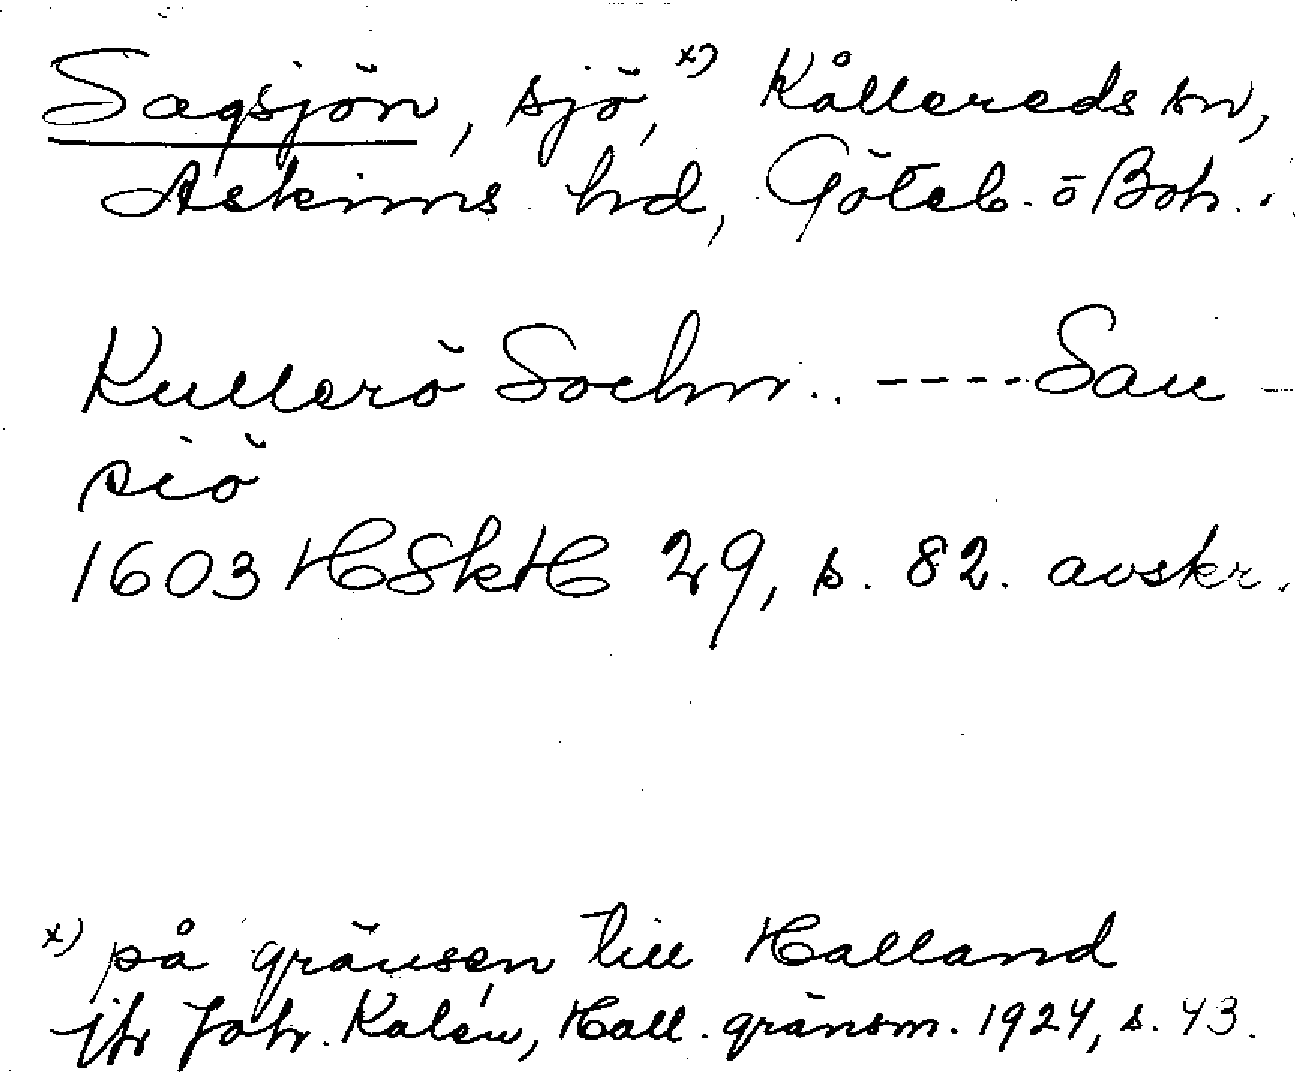 Sagsjön, sjö, x) Kållereds sn,
Askims hd, Göteb. o Boh.
Kullerö Sochn.. ----Sau-
siö
1603 HSkH 29, s. 82. avskr.
x) på gränsen till Halland
jfr Joh. Kalén, Hall. gränsm. 1924, s. 43.